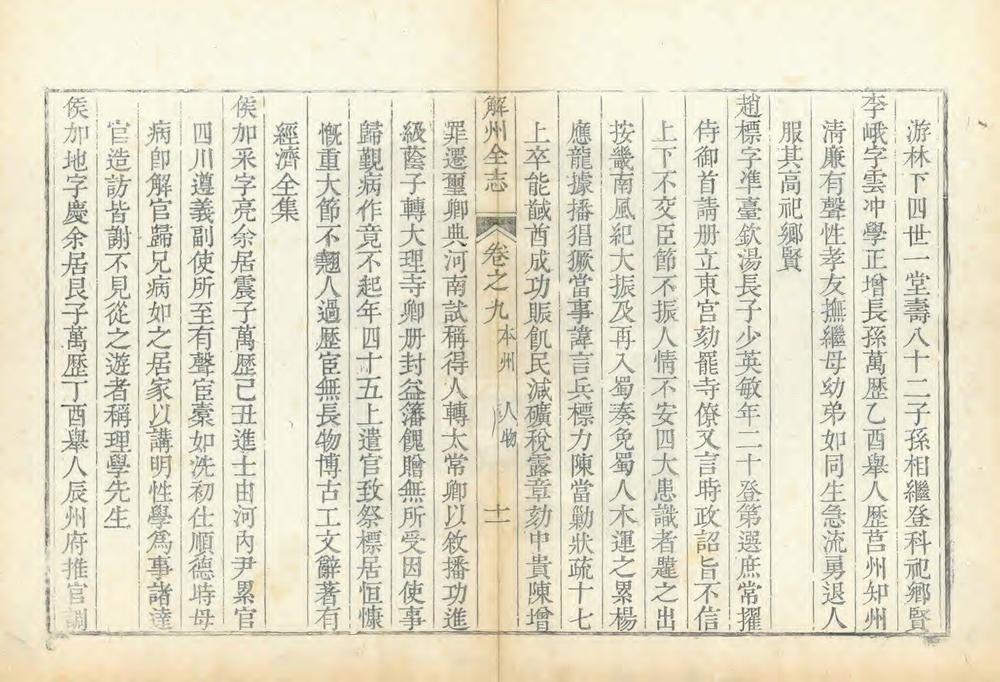 游林下四世一堂壽八十二子孫相繼登科祀鄉賢
李峨字雲冲學正增長孫萬歷乙酉舉人歷莒州知州
淸廉有聲性孝友撫繼母幼弟如同生急流勇退人
服其高祀鄉賢
趙標字準臺欽湯長子少英敏年二十登第選庶常擢
侍御首請册立東宮劾罷寺僚又言時政詔旨不信
上下不交臣節不振人情不安四大患識者韙之出
按畿南風紀大振及再入蜀奏免蜀人木運之累楊
應龍據播猖獗當事諱言兵標力陳當勦狀疏十七
上卒能馘酋成功賑飢民減礦稅露章劾中貴陳增
解州全志 卷之九 本州 人物 十一
罪遷璽卿典河南試稱得人轉太常卿以敘播功進
級蔭子轉大理寺卿册封益藩餽贈無所受因使事
歸覲病作竟不起年四十五上遣官致祭標居恒慷
慨重大節不翹人過歷宦無長物博古工文辭著有
經濟全集
侯加采字亮余居震子萬歷己丑進士由河內尹累官
四川遵義副使所至有聲宦槖如洗初仕順德時母
病卽解官歸兄病如之居家以講明性學爲事諸達
官造訪皆謝不見從之遊者稱理學先生
侯加地字慶余居艮子萬歷丁酉舉人辰州府推官調